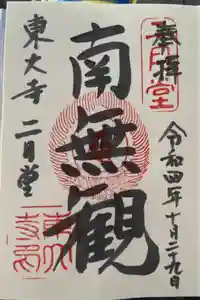 奉拝
令和四年十月二十九日
南無観
東大寺 二月堂